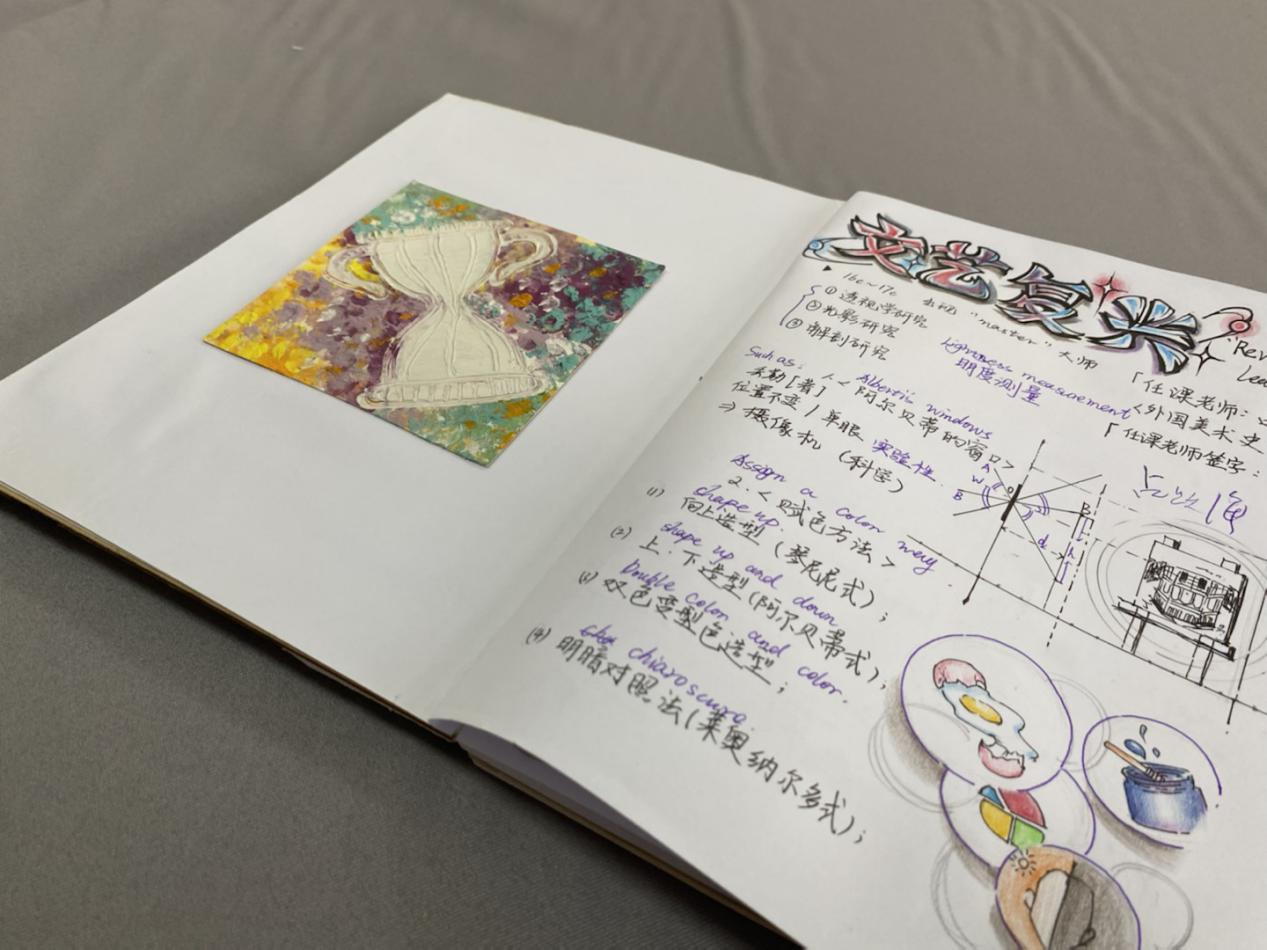 文艺复兴
▶ 16c~17c 出现 "master" 大师
① 透视学研究
② 光影研究
③ 解剖研究
Lightness measurement
明度测量
「任课老师:
<外国美术史
「任课老师签字:
Such as:
Alberti's windows
<阿尔贝蒂的窗口>
位置不变/单眼 实验性.
⇒ 摄像机 (科学)
A
W
B
B
d
h
Assign a color way.
2. <赋色方法>
(1) shape up.
向上造型 (琴尼尼式);
(2) shape up and down
上.下造型 (阿尔贝蒂式);
Double color and color.
双色变型色造型;
(4) chiaroscuro.
明暗对照法 (莱奥纳尔多式);